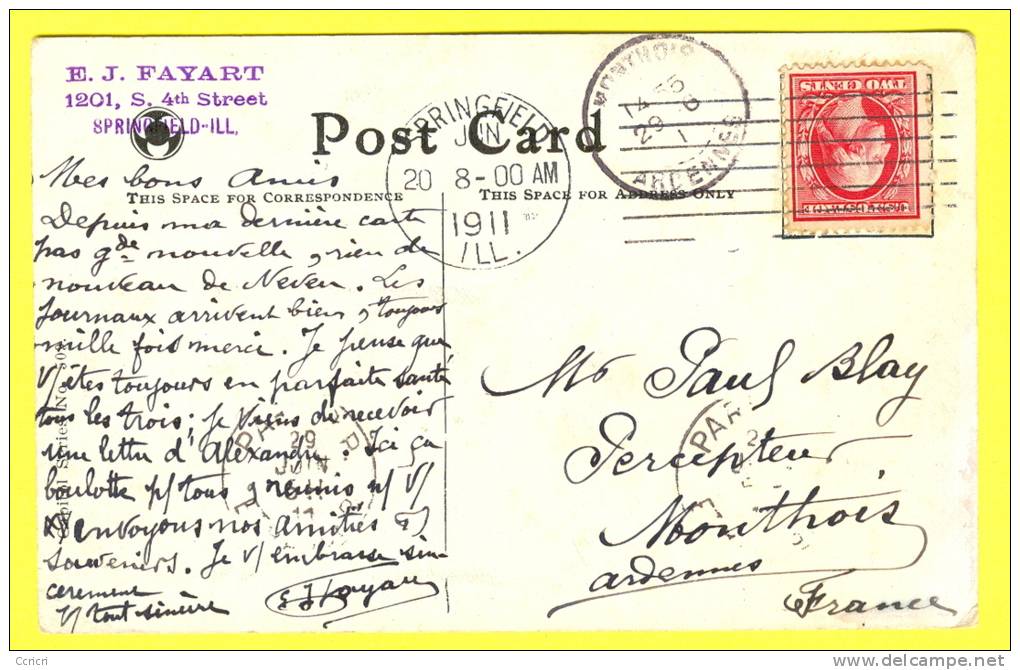 E. J. FAYART
1201, S. 4th Street
SPRINGFIELD-ILL,
Post Card
THIS SPACE FOR CORRESPONDENCE
THIS SPACE FOR ADDRESS ONLY
SPRINGFIELD
JUN
20 8-00 AM
1911
ILL.
MONTHOIS
14 35
29 6
ARDENNES
TWO CENTS
Mes bons Amis
Depuis ma dernière carte
pas gde nouvelle, rien de
nouveau de Neveu. Les
journaux arrivent bien, toujours
mille fois merci. Je pense que
v/ êtes toujours en parfaite santé
tous les trois; je viens de recevoir
une lettre d'Alexandre. Ici ça
boulotte p/ tous, réunis n/ v/
envoyons nos amitiés &
souvenirs. Je v/ embrasse sin
cèrement
v/ tout sincère
E J Fayart
Mr Paul Blay
Percepteur
Monthois
ardennes
France
PARIS
29
JUIN
11
PAR
Ccricri
www.delcampe.net